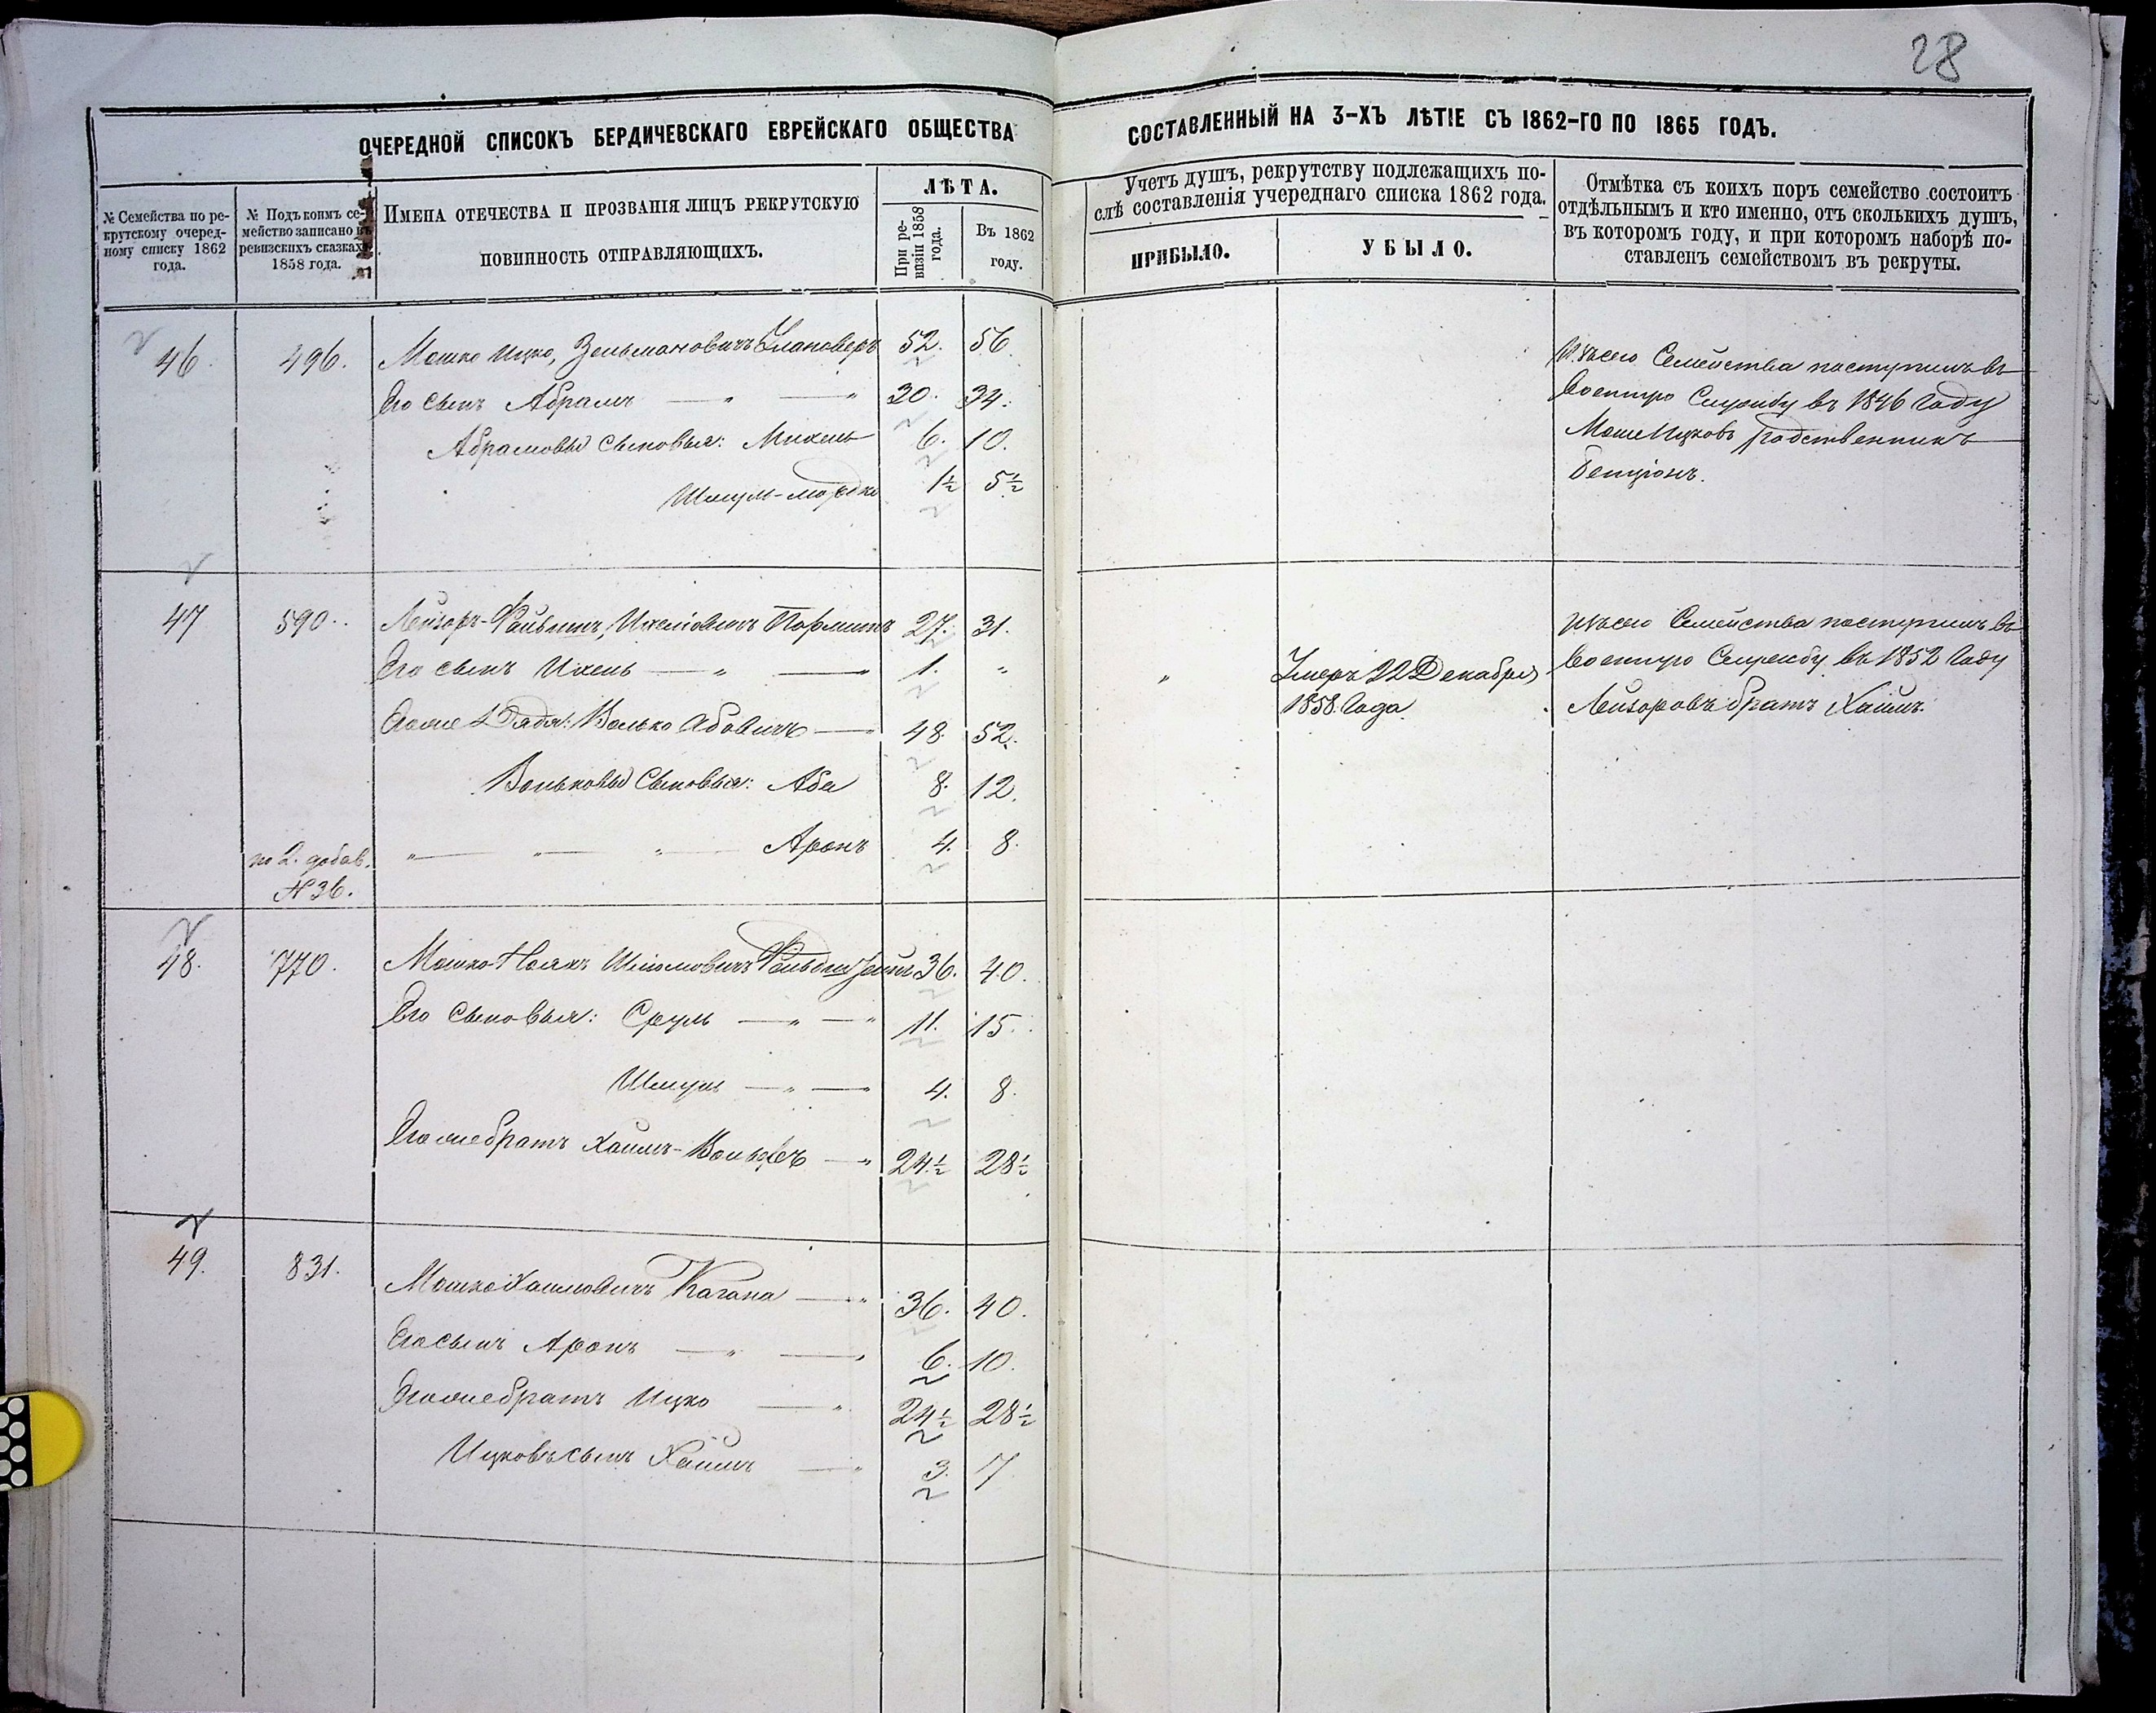 28
ОЧЕРЕДНОЙ СПИСОКЪ БЕРДИЧЕВСКАГО ЕВРЕЙСКАГО ОБЩЕСТВА
СОСТАВЛЕННЫЙ НА 3-ХЪ ЛѢТІЕ СЪ 1862-ГО ПО 1865 ГОДЪ.
№ Семейства по ре-
крутскому очеред-
ному списку 1862
года.
№ Подъ коимъ се-
мейство записано въ
ревизскихъ сказкахъ
1858 года.
ИМЕНА ОТЕЧЕСТВА И ПРОЗВАНІЯ ЛИЦЪ РЕКРУТСКУЮ
ПОВИННОСТЬ ОТПРАВЛЯЮЩИХЪ.
ЛѢТА.
При ре-
визіи 1858
года.
Въ 1862
году.
Учетъ душъ, рекрутству подлежащихъ по-
слѣ составленія учереднаго списка 1862 года.
ПРИБЫЛО.
УБЫЛО.
Отмѣтка съ коихъ поръ семейство состоитъ
отдѣльнымъ и кто именно, отъ сколькихъ душъ,
въ котором году, и при котором наборѣ по-
ставленъ семействомъ въ рекруты.
46. 496. Мошко Ицко, Зельмановичъ Улановеръ 52. 56
Его сынъ Абрамъ — " — " 30. 34.
Абрамовы сыновья: Михель 6. 10.
Шмуль-мордко 1½ 5½
Изъ сего Семейства поступилъ въ
военную Службу въ 1846 году
МошеИцковъ родственникъ
Бенціонъ.
47 590. Лейзоръ-Файвишъ, Ихелiовичъ 27. 31.
Его сынъ Ихель — " — " 1. "
Его же дядя: Волько Абовичъ — " 48. 52.
Вольковы Сыновья: Аба 8. 12.
по 2. добав. " — " — " — Аронъ 4. 8.
№ 36.
" Умеръ 22 Декабря
1858 Года.
Изъ сего Семейства поступилъ въ
военную Службу въ 1852 Году
Лейзоровъ братъ Хаимъ.
48. 770. Мошко Шліомовичъ 36. 40.
Его сыновья: Сруль — " — " 11. 15.
Шмуль — " — " 4. 8.
Его же братъ Хаимъ-Вольфъ — " 24½ 28½
49. 831. Мошко Хаимовичъ Кагана — " 36. 40.
Его сынъ Аронъ — " — " 6. 10.
Его же братъ Ицко — " 24½ 28½
Ицковъ сынъ Хаимъ — " 3. 7